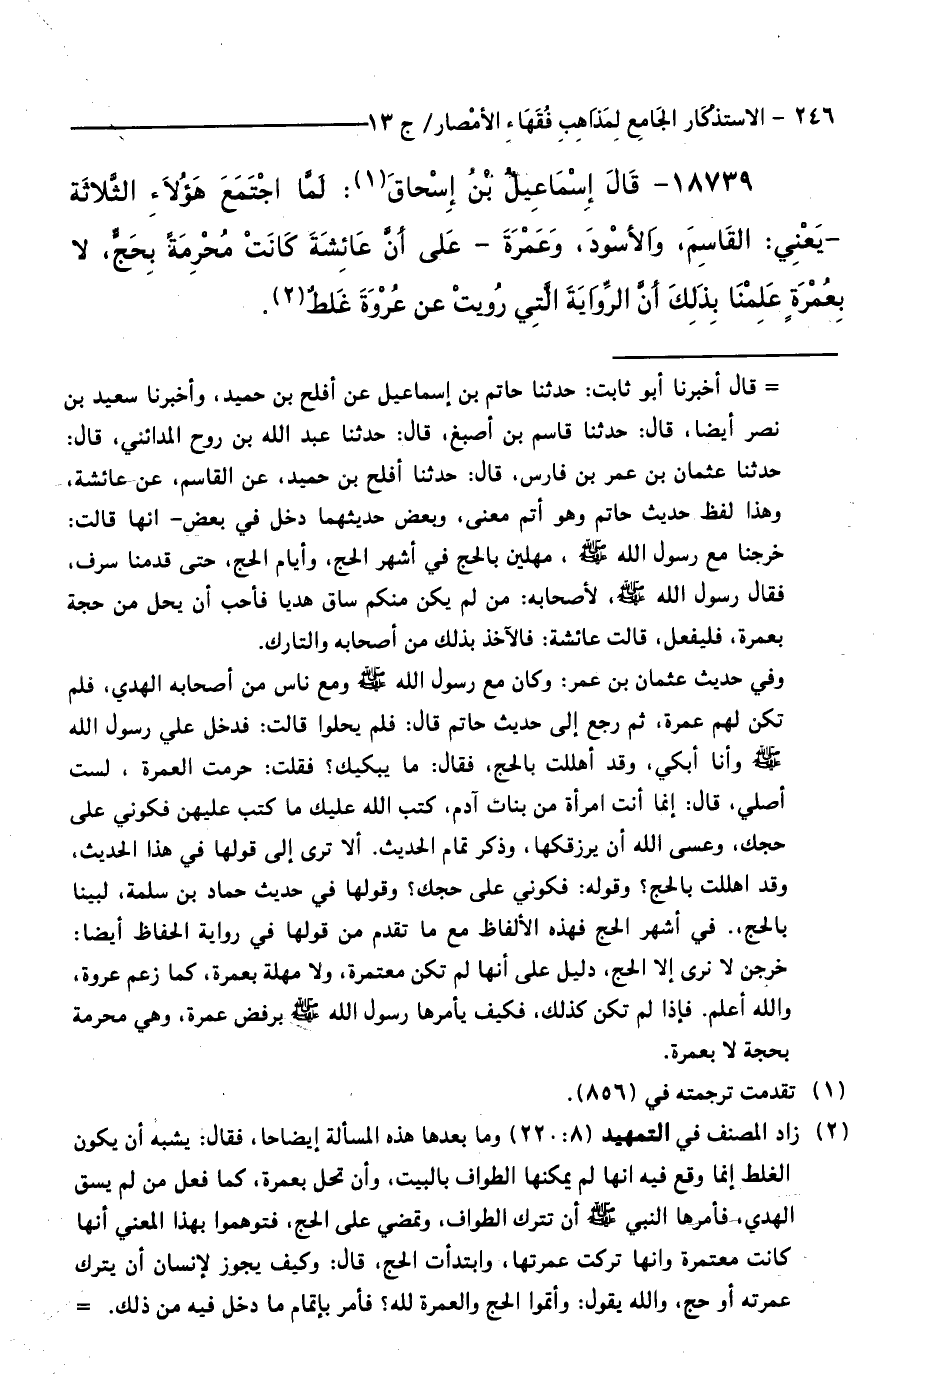 ٢٤٦ - الاستذكار الجامع لمذاهب فقهاء الأمصار/ ج ١٣
١٨٧٣٩- قَالَ إِسْمَاعِيلُ بْنُ إِسْحَاقَ(١): لَمَّا اجْتَمَعَ هَؤُلاَءِ الثَّلاثَة
-يَعْنِي: القَاسِمَ، وَالأسْودَ، وَعَمْرَةَ - عَلى أنَّ عَائِشَةَ كَانَتْ مُحْرِمَةً بِحَجٍّ، لا
بِعُمْرَةٍ عَلِمْنَا بِذَلِكَ أنَّ الرِّوَايَةَ الَّتِي رُويتْ عن عُرْوَةَ غَلطٌ(٢).
= قال أخبرنا أبو ثابت: حدثنا حاتم بن إسماعيل عن أفلح بن حميد، وأخبرنا سعيد بن
نصر أيضا، قال: حدثنا قاسم بن أصبغ، قال: حدثنا عبد الله بن روح المدائني، قال:
حدثنا عثمان بن عمر بن فارس، قال: حدثنا أفلح بن حميد، عن القاسم، عن عائشة،
وهذا لفظ حديث حاتم وهو أتم معنى، وبعض حديثهما دخل في بعض- انها قالت:
خرجنا مع رسول الله ﷺ ، مهلين بالحج في أشهر الحج، وأيام الحج، حتى قدمنا سرف،
فقال رسول الله ﷺ، لأصحابه: من لم يكن منكم ساق هديا فأحب أن يحل من حجة
بعمرة، فليفعل، قالت عائشة: فالآخذ بذلك من أصحابه والتارك.
وفي حديث عثمان بن عمر: وكان مع رسول الله ﷺ ومع ناس من أصحابه الهدي، فلم
تكن لهم عمرة، ثم رجع إلى حديث حاتم قال: فلم يحلوا قالت: فدخل علي رسول الله
ﷺ وأنا أبكي، وقد أهللت بالحج، فقال: ما يبكيك؟ فقلت: حرمت العمرة ، لست
أصلي، قال: إنما أنت امرأة من بنات آدم، كتب الله عليك ما كتب عليهن فكوني على
حجك، وعسى الله أن يرزقكها، وذكر تمام الحديث. ألا ترى إلى قولها في هذا الحديث،
وقد اهللت بالحج؟ وقوله: فكوني على حجك؟ وقولها في حديث حماد بن سلمة، لبينا
بالحج،. في أشهر الحج فهذه الألفاظ مع ما تقدم من قولها في رواية الحفاظ أيضا:
خرجن لا نرى إلا الحج، دليل على أنها لم تكن معتمرة، ولا مهلة بعمرة، كما زعم عروة،
والله أعلم. فإذا لم تكن كذلك، فكيف يأمرها رسول الله ﷺ برفض عمرة، وهي محرمة
بحجة لا بعمرة.
(١) تقدمت ترجمته في (٨٥٦).
(٢) زاد المصنف في التمهيد (٨: ٢٢٠) وما بعدها هذه المسألة إيضاحا، فقال: يشبه أن يكون
الغلط إنما وقع فيه انها لم يمكنها الطواف بالبيت، وأن تحل بعمرة، كما فعل من لم يسق
الهدي، فأمرها النبي ﷺ أن تترك الطواف، وتمضي على الحج، فتوهموا بهذا المعني أنها
كانت معتمرة وانها تركت عمرتها، وابتدأت الحج، قال: وكيف يجوز لإنسان أن يترك
عمرته أو حج، والله يقول: وأتموا الحج والعمرة لله؟ فأمر بإتمام ما دخل فيه من ذلك. =